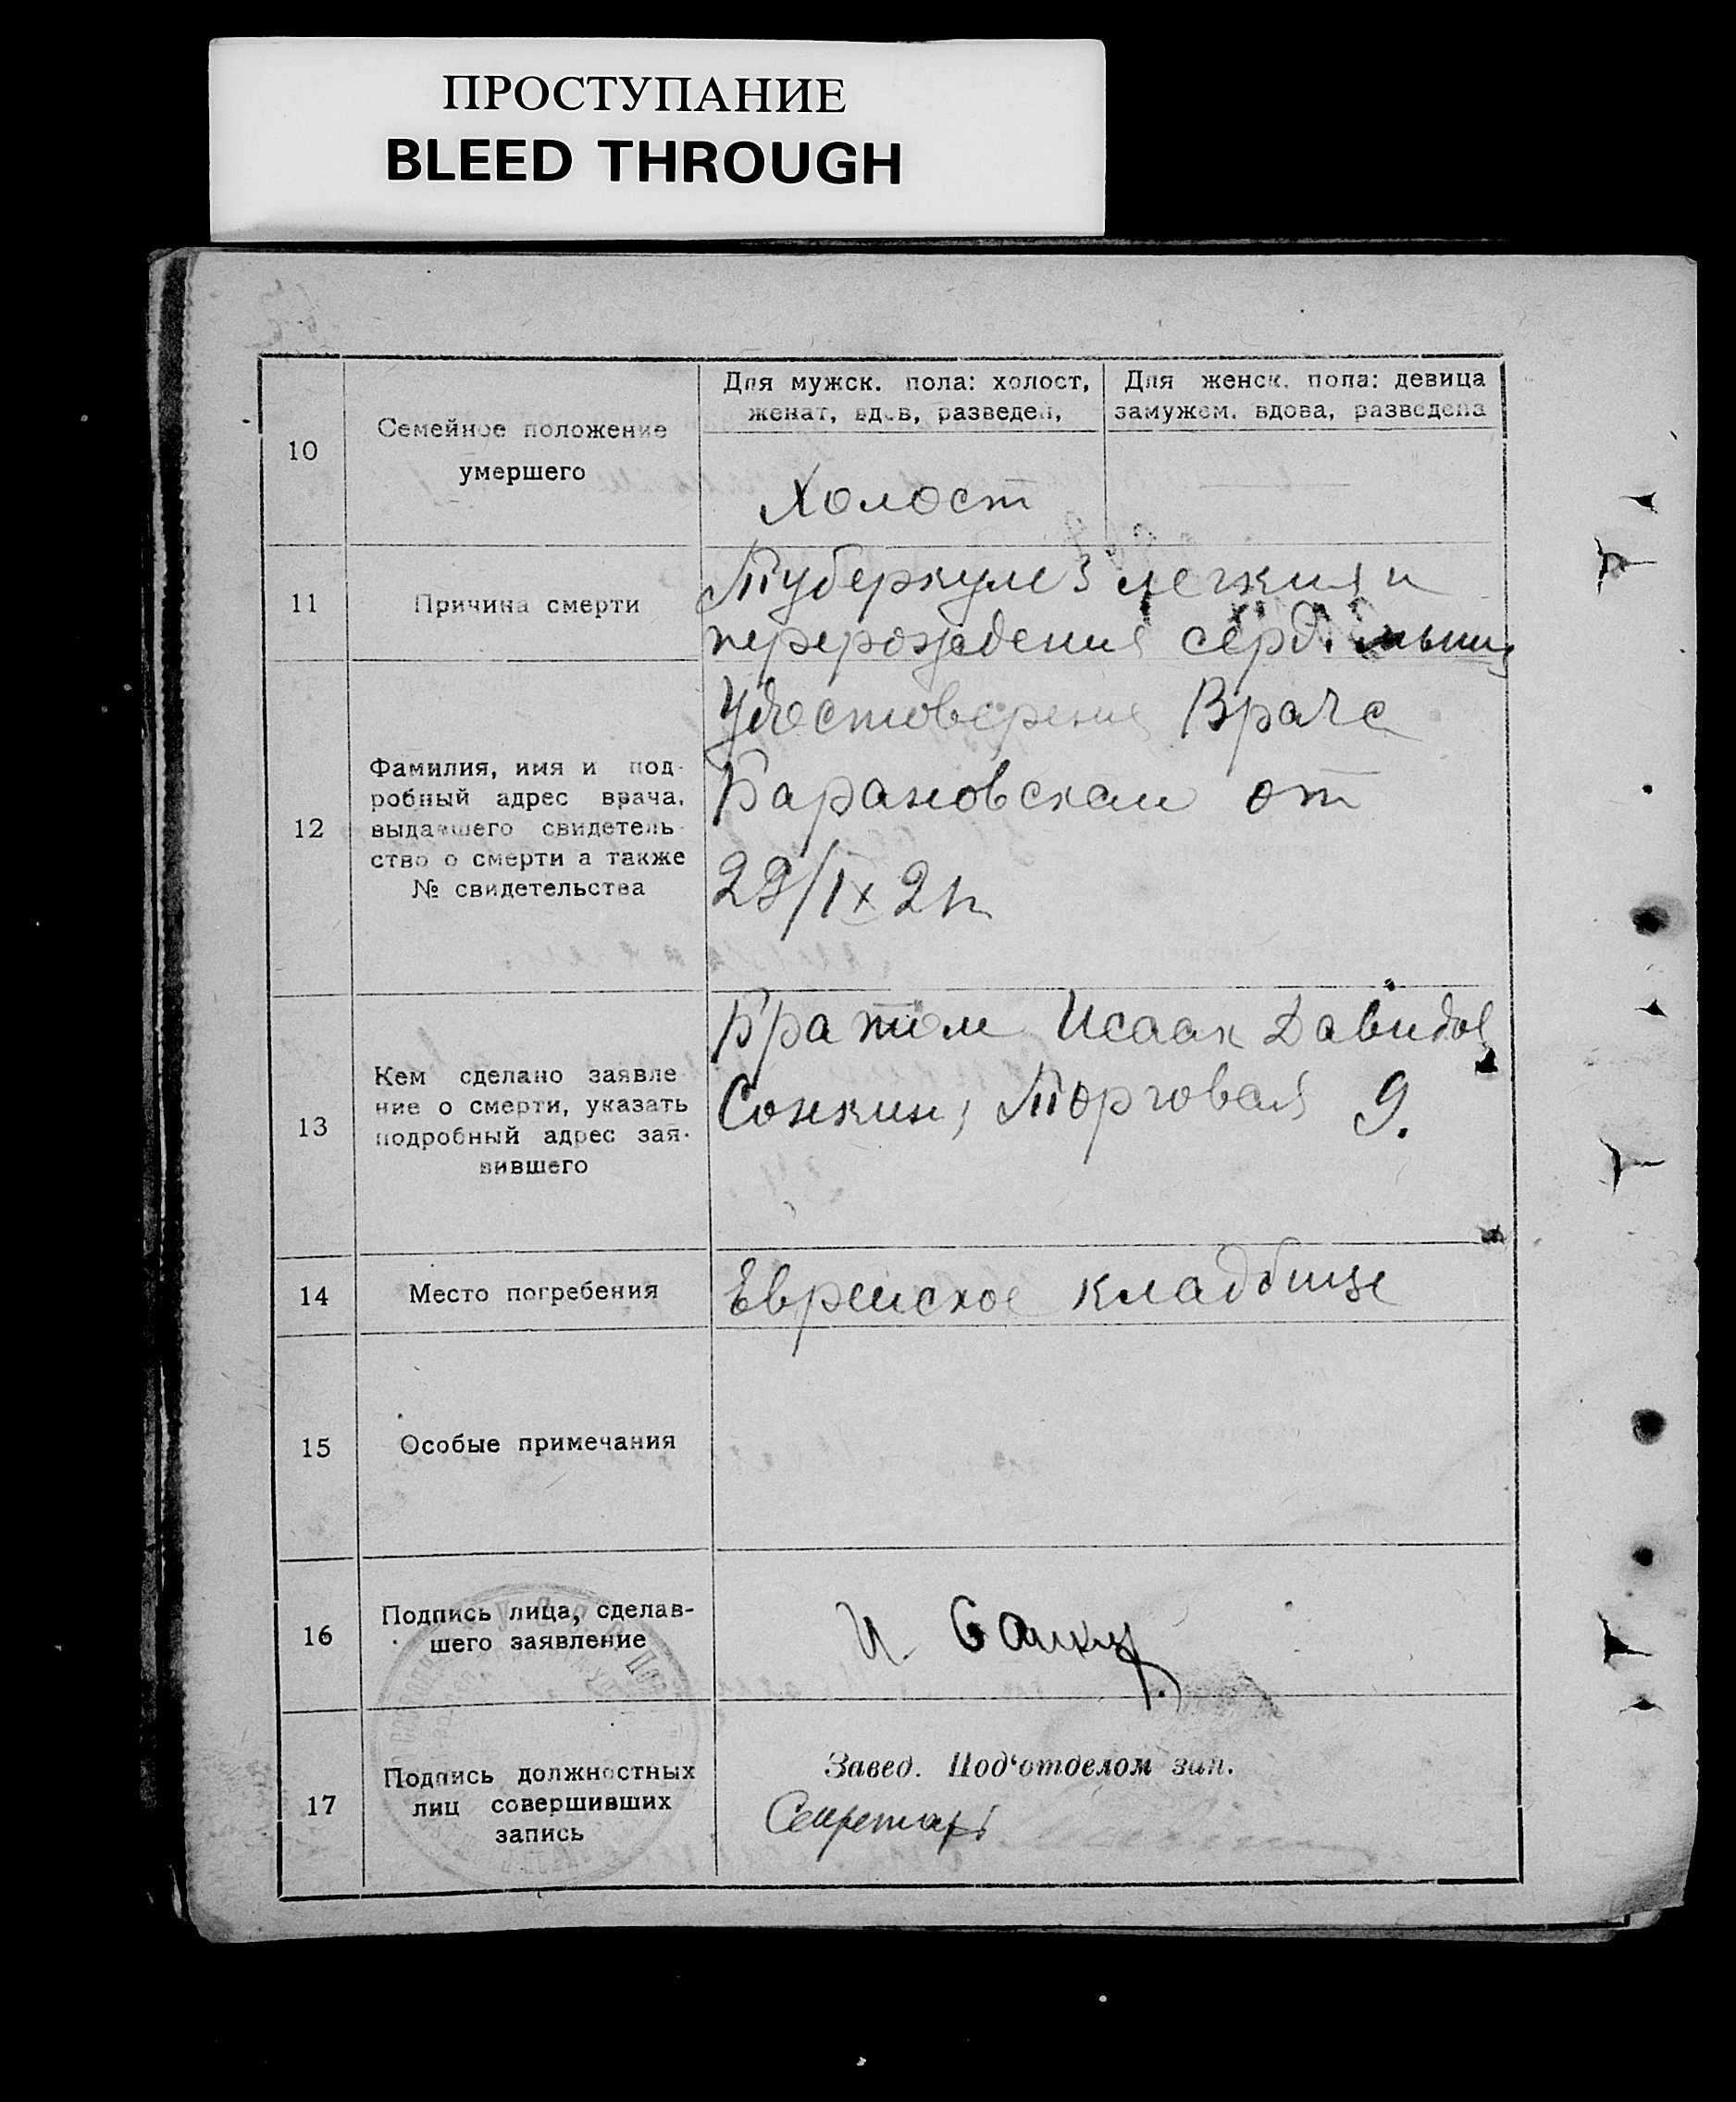 ПРОСТУПАНИЕ
BLEED THROUGH
10
Семейное положение
умершего
Для мужск. пола: холост,
женат, вдов, разведен,
Для женск. пола: девица
замужем. вдова, разведена
Холост
11
Причина смерти
Туберкулез легких и
перерождения серд. мышц
12
Фамилия, имя и под-
робный адрес врача,
выдавшего свидетель-
ство о смерти а также
№ свидетельства
Удостоверение Врача
Барановской от
28/IX 21 г.
13
Кем сделано заявле
ние о смерти, указать
подробный адрес зая-
вившего
Братом Исаак Давидов
Сонкин, Торговая 9.
14
Место погребения
Еврейское кладбище
15
Особые примечания
16
Подпись лица, сделав-
шего заявление
И.
17
Подпись должностных
лиц совершивших
запись
Завед. Под‘отделом зап.
Секретарь